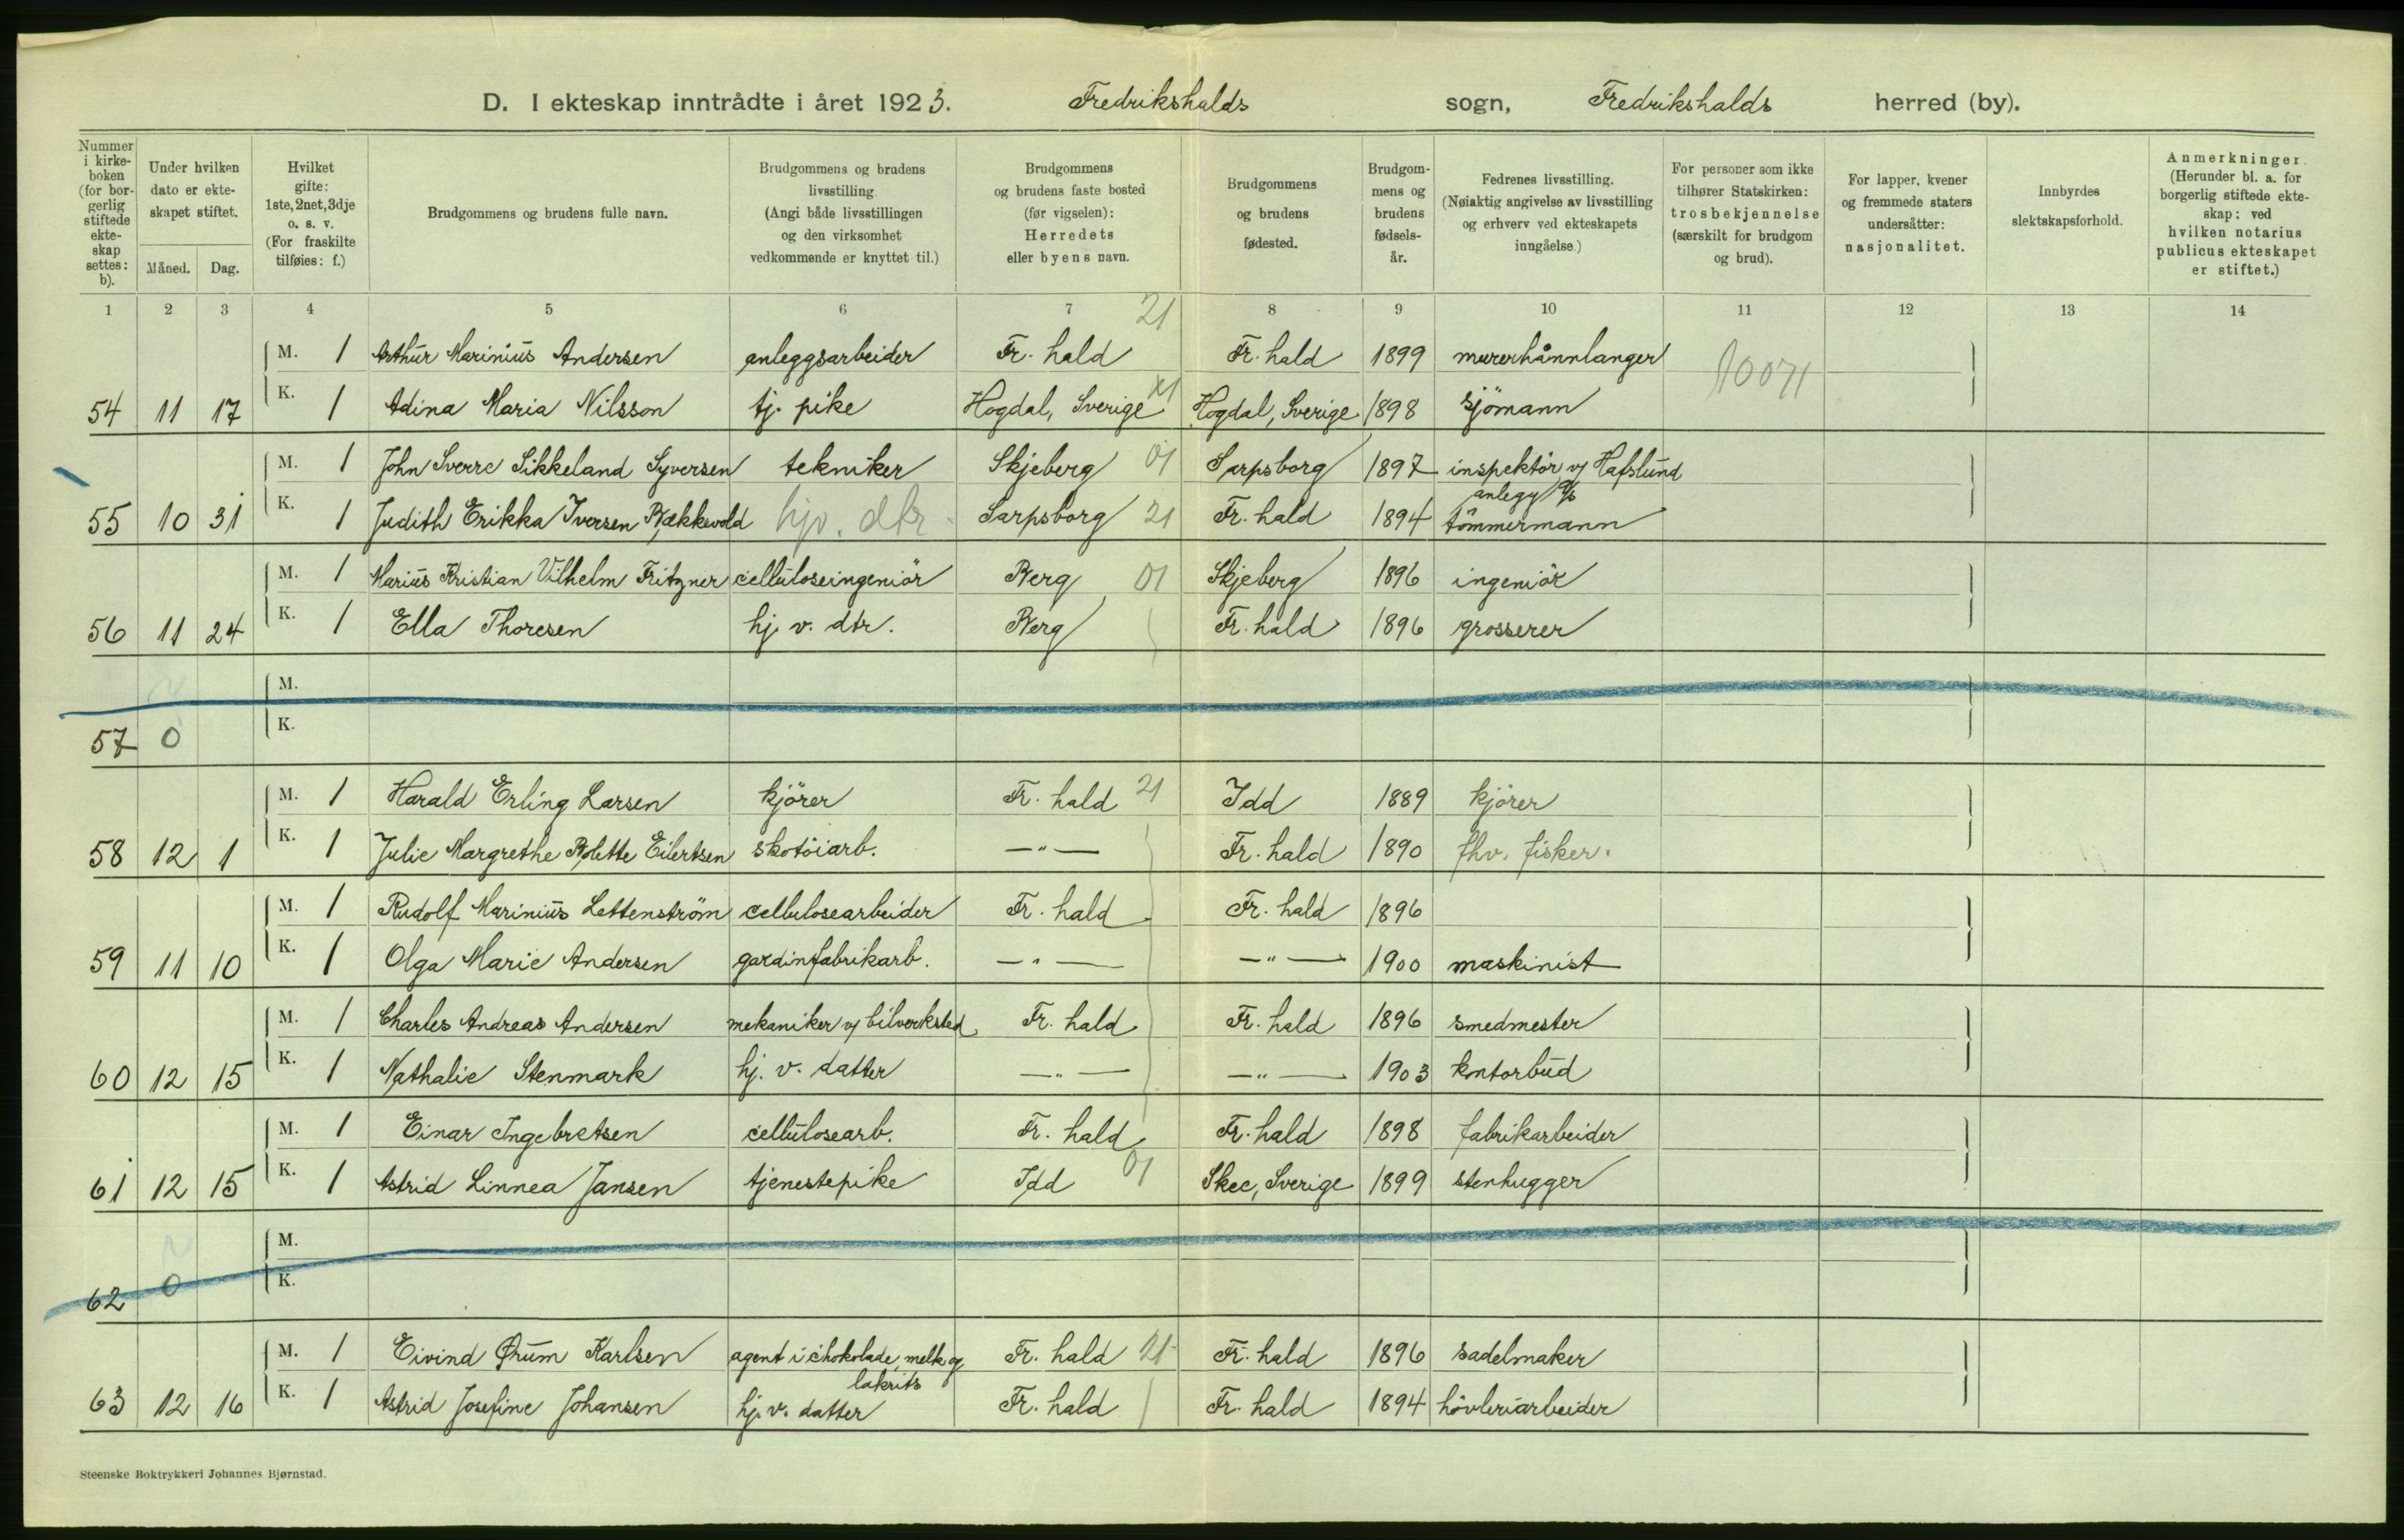 D. I ekteskap inntrådte i året 1923. Fredrikshalds sogn, Fredrikshalds herred (by).
Nummer i kirke- boken (for bor- gerlig stiftede ekte- skap settes: b).
Under hvilken dato er ekte- skapet stiftet.
Måned. Dag.
Hvilket gifte: 1ste, 2net, 3dje o. s. v. (For fraskilte tilføies: f.)
Brudgommens og brudens fulle navn.
Brudgommens og brudens livsstilling. (Angi både livsstillingen og den virksomhet vedkommende er knyttet til.)
Brudgommens og brudens faste bosted (før vigselen): Herredets eller byens navn.
Brudgommens og brudens fødested.
Brudgom- mens og brudens fødsels- år.
Fedrenes livsstilling. (Nøiaktig angivelse av livsstilling og erhverv ved ekteskapets inngåelse.)
For personer som ikke tilhører Statskirken: trosbekjennelse (særskilt for brudgom og brud).
For lapper, kvener og fremmede staters undersåtter: nasjonalitet.
Innbyrdes slektskapsforhold.
Anmerkninger. (Herunder bl. a. for borgerlig stiftede ekte- skap: ved hvilken notarius publicus ekteskapet er stiftet.)
1 2 3 4 5 6 7 8 9 10 11 12 13 14
21
M. 1 Arthur Marinius Andersen anleggsarbeider Fr. hald Fr. hald 1899 murerhånnlanger 10071
54 11 17 K. 1 Adina Maria Nilsson tj. pike Hogdal, Sverige Hogdal, Sverige 1898 sjömann
M. 1 John Sverre Sikkeland Syversen tekniker Skjeberg 01 Sarpsborg 1897 inspektör v/ Hafslund
anlegg A/S
55 10 31 K. 1 Judith Erikka Iversen Bækkevold hjv. dtr. Sarpsborg 21 Fr. hald 1894 tömmermann
M. 1 Marius Kristian Vilhelm Fritzner celluloseingeniör Berg 01 Skjeberg 1896 ingeniör
56 11 24 K. 1 Ella Thoresen hj. v. dtr. Berg Fr. hald 1896 grosserer
M.
57 0 K.
M. 1 Harald Erling Larsen kjörer Fr. hald 21 Idd 1889 kjörer
58 12 1 K. 1 Julie Margrethe Bolette Eilertsen skotöiarb. —"— Fr. hald 1890 fhv. fisker.
M. 1 Rudolf Marinius Lettenström cellulosearbeider Fr. hald Fr. hald 1896
59 11 10 K. 1 Olga Marie Andersen gardinfabrikarb. —"— —"— 1900 maskinist
M. 1 Charles Andreas Andersen mekaniker v/ bilverksted Fr. hald Fr. hald 1896 smedmester
60 12 15 K. 1 Nathalie Stenmark hj. v. datter —"— —"— 1903 kontorbud
M. 1 Einar Ingebretsen cellulosearb. Fr. hald Fr. hald 1898 fabrikarbeider
61 12 15 K. 1 Astrid Linnea Jansen tjenestepike Idd 01 Skee, Sverige 1899 stenhugger
M.
62 0 K.
M. 1 Eivind Ørum Karlsen agent i chokolade, melk og Fr. hald 21 Fr. hald 1896 sadelmaker
lakrits
63 12 16 K. 1 Astrid Josefine Johansen hj. v. datter Fr. hald Fr. hald 1894 hövleriarbeider
Steenske Boktrykkeri Johannes Bjørnstad.